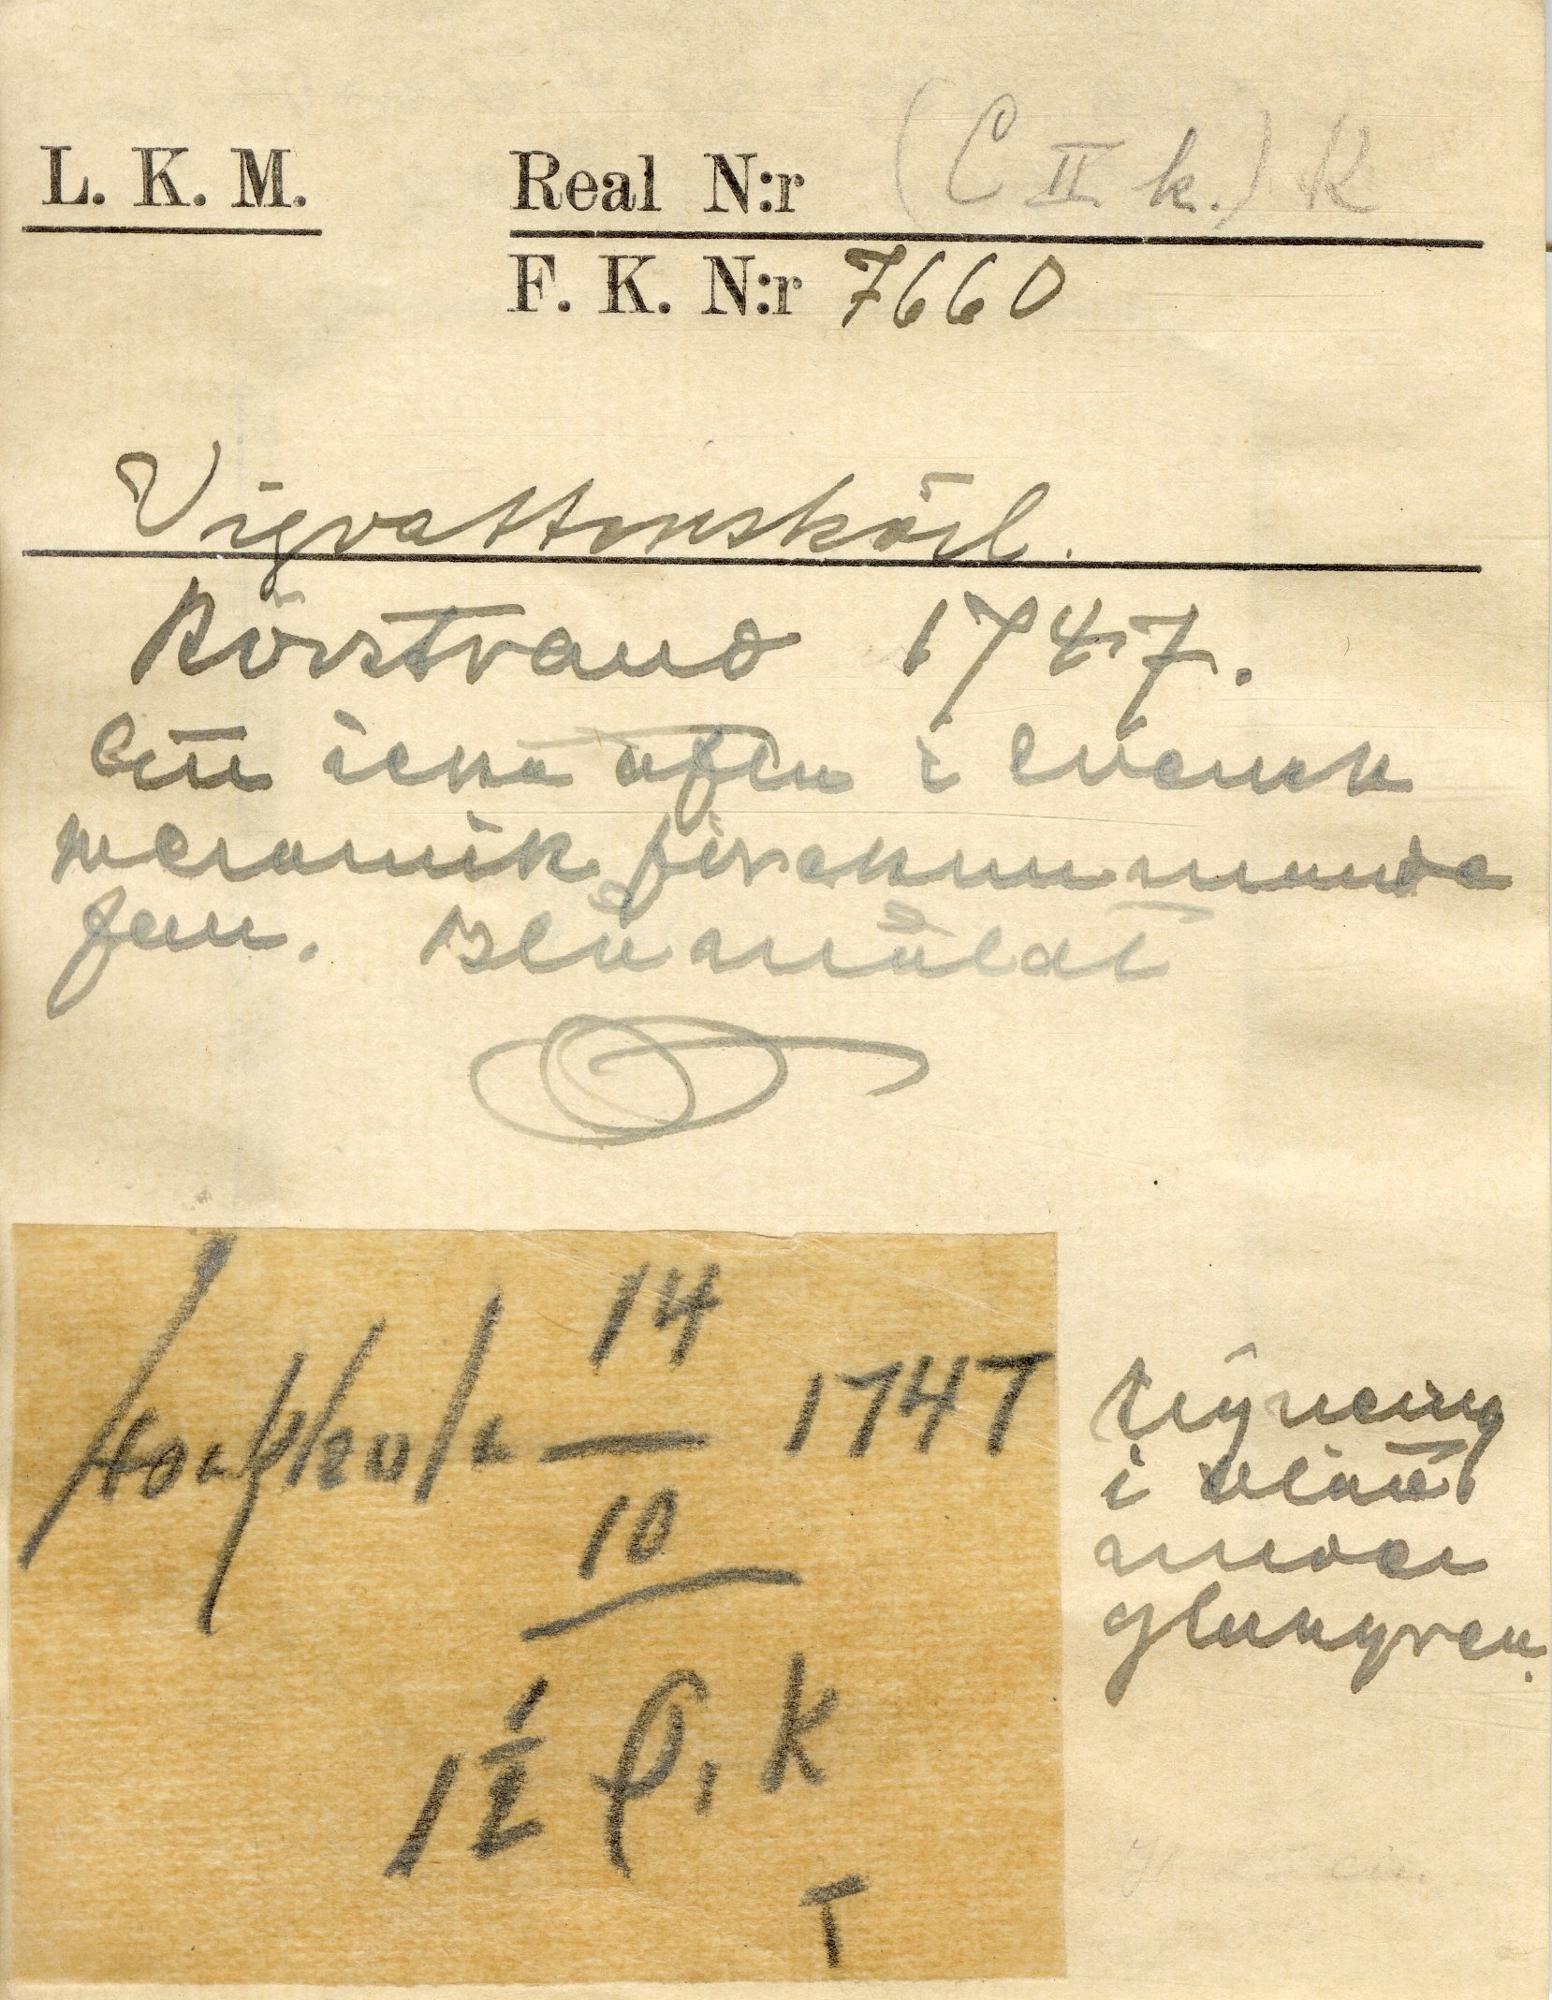 L. K. M.
Real N:r (C II k.) K
F. K. N:r 7660
Vigvattenskärl.
Rörstrand 1747.
Ett icke ofta i svensk
keramik förekommande
fem. Blåmålat
Stockholm 14/10 1747
1½ P, K
T
Signering
i blått
under
glasyren.